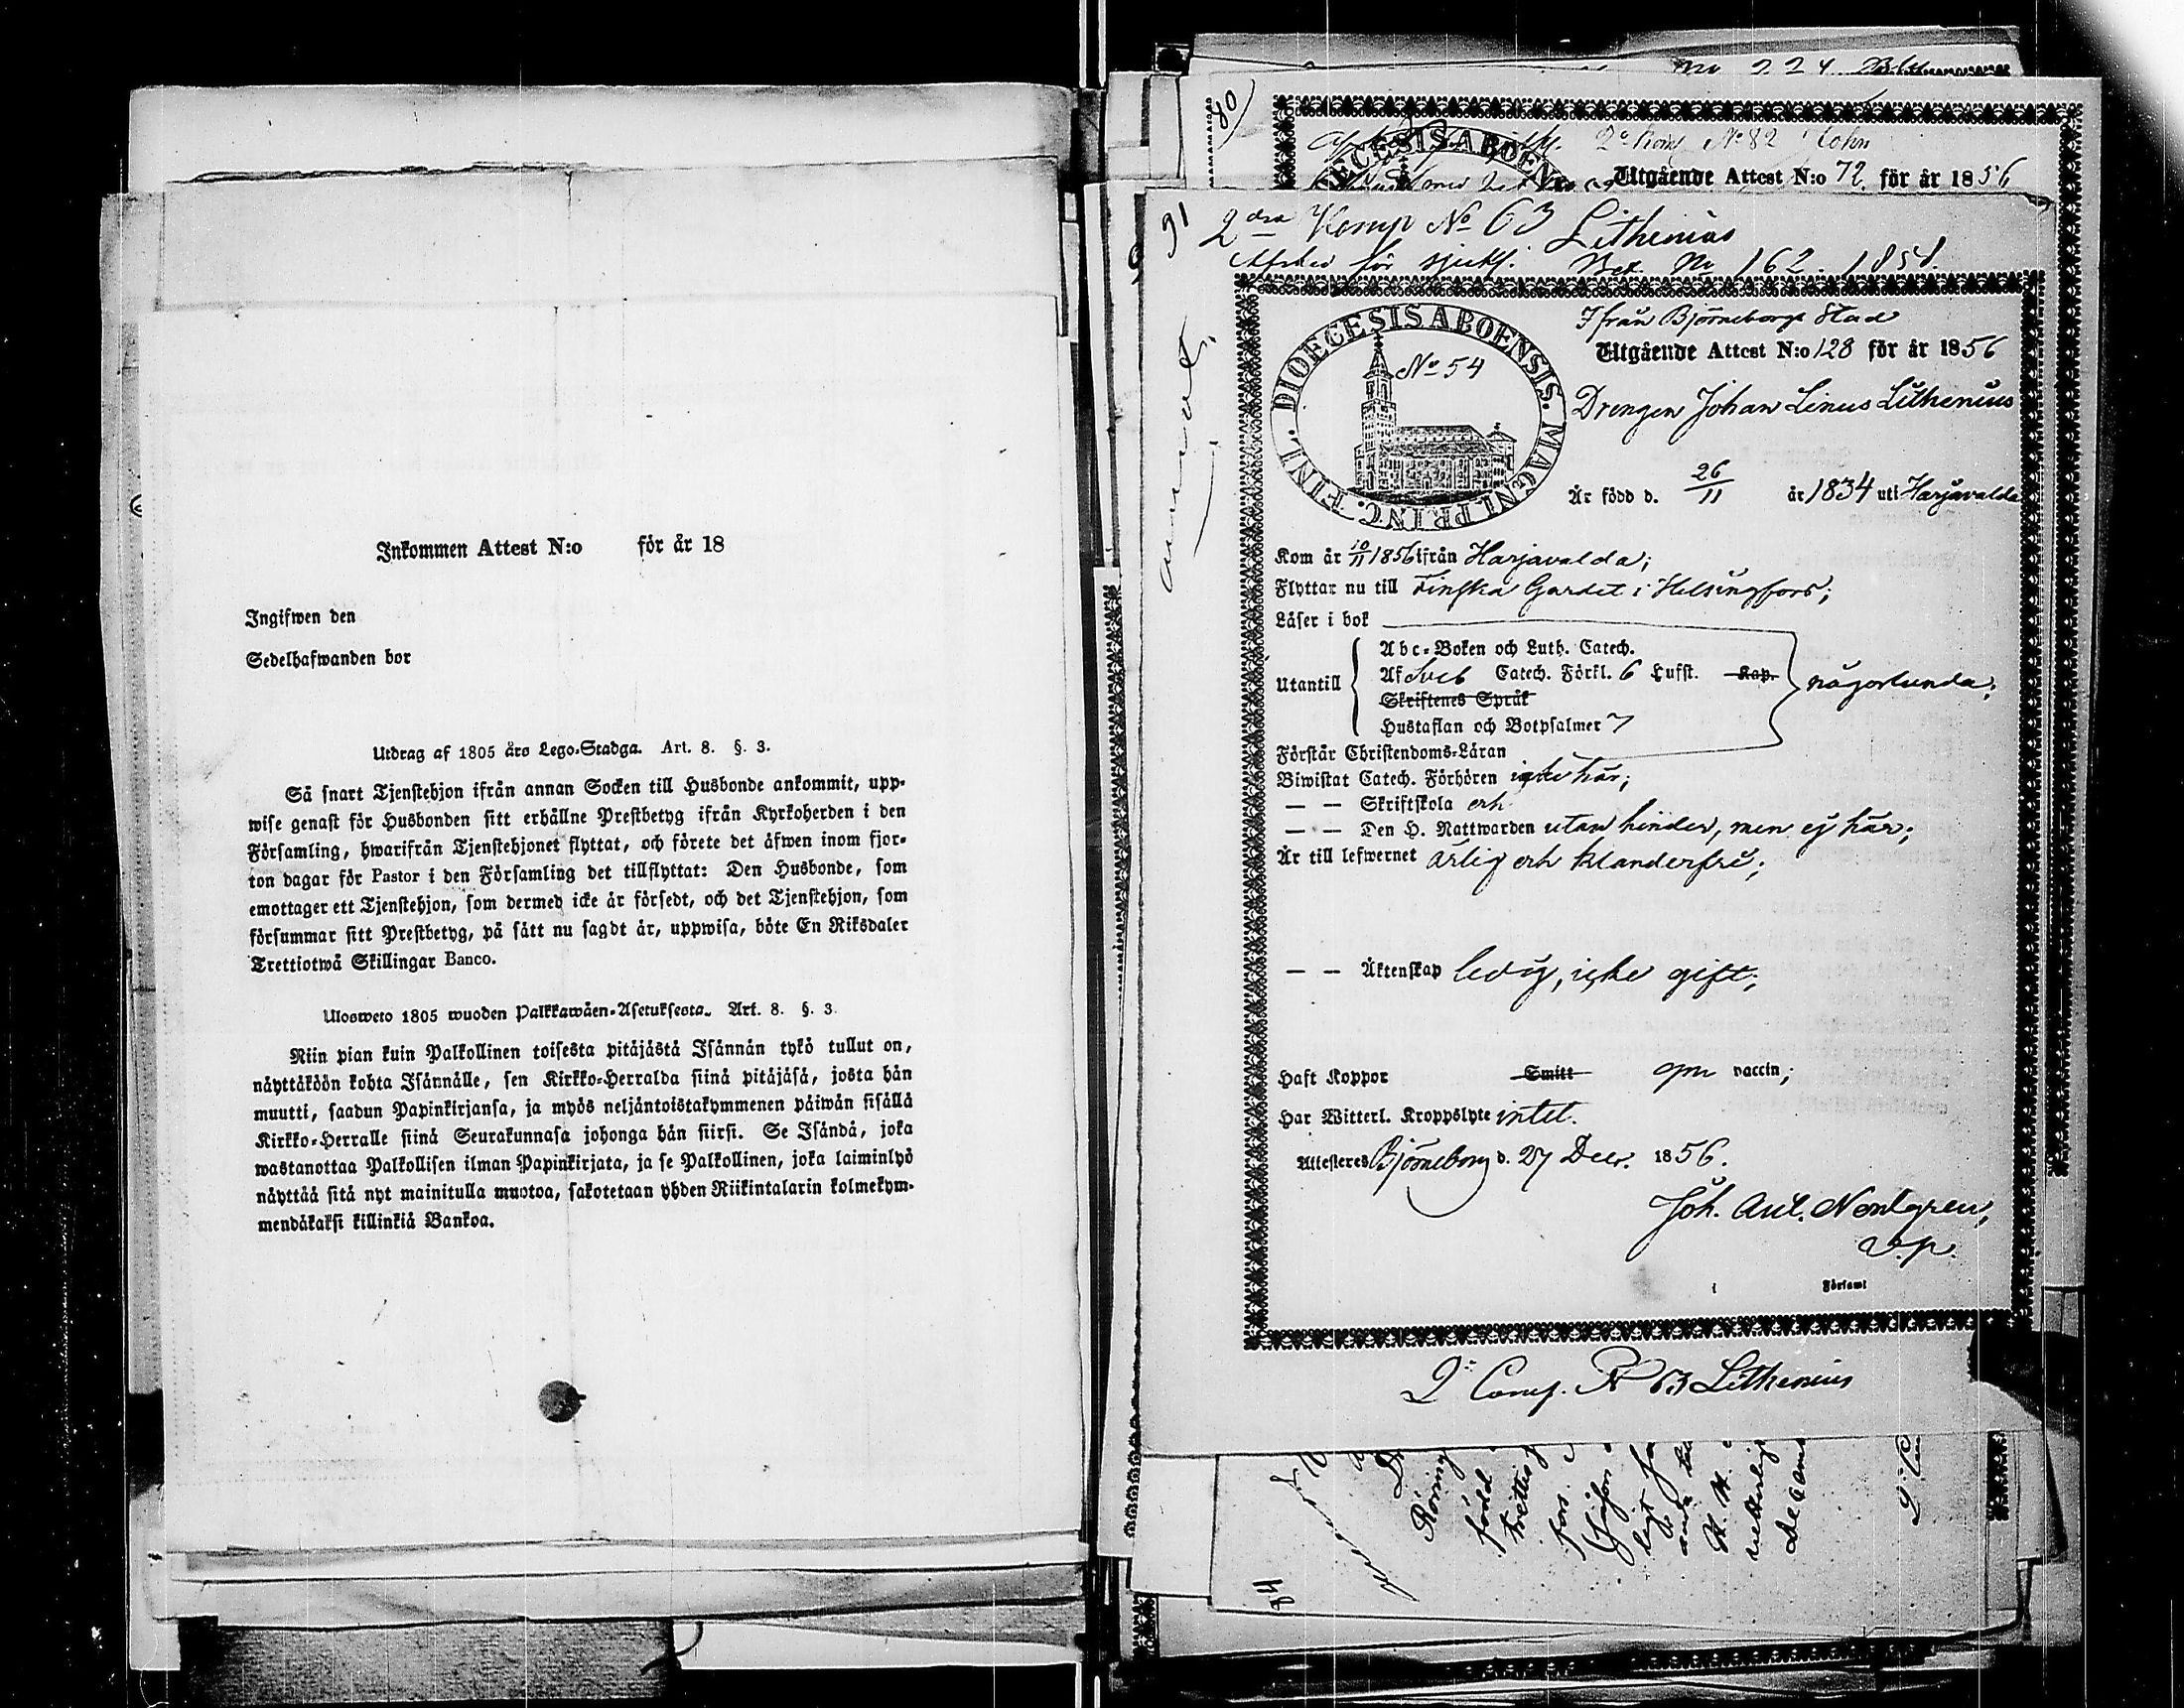 Inkommen Attest N:o för år 18
Ingifwen den
Sedelhafwanden bor
Utdrag af 1805 års Lego-Stadga. Art. 8. §. 3.
Så snart Tjenstehjon ifrån annan Socken till Husbonde ankommit, upp-
wise genast för Husbonden sitt erhållne Prestbetyg ifrån Kyrkoherden i den
Församling, hwarifrån Tjenstehjonet flyttat, och förete det äfwen inom fjor-
ton dagar för Pastor i den Församling det tillflyttat: Den Husbonde, som
emottager ett Tjenstehjon, som dermed icke är försedt, och det Tjenstehjon, som
försummar sitt Prestbetyg, på sätt nu sagdt är, uppwisa, böte En Riksdaler
Trettiotwå Skillingar Banco.
Ulosweto 1805 wuoden Palkkawäen-Asetuksesta. Art. 8. §. 3.
Niin pian kuin Palkollinen toisesta pitäjästä Isännän tykö tullut on,
näyttäköön kohta Isännälle, sen Kirkko-Herralda siinä pitäjäsä, josta hän
muutti, saadun Papinkirjansa, ja myös neljäntoistakymmenen päiwän sisällä
Kirkko-Herralle siinä Seurakunnasa johonga hän siirsi. Se Isändä, joka
wastanottaa Palkollisen ilman Papinkirjata, ja se Palkollinen, joka laiminlyö
näyttää sitä nyt mainitulla muotoa, sakotetaan yhden Riikintalarin kolmekym-
mendäkaksi killinkiä Bankoa.
80
DIOECESIS ABOEN
2a Komp No 82 Cohn
Utgående Attest N:o 72 för år 1856
91
2dra Komp No 63 Lithenius
Afsked för sjukl. Bet. No 162. 1854.
DIOECESIS ABOENSIS. MAGNI. PRINC. FINL.
No 54
Ifrån Björneborgs Stad
Utgående Attest N:o 128 för år 1856
Drengen Johan Linus Lithenius
Är född d. 26/11 år 1834 uti Harjavalda
Kom år 10/11 1856 ifrån Harjavalda;
Flyttar nu till Finska Gardet i Helsingfors;
Läser i bok
Utantill
Abc-Boken och Luth. Catech.
Af Sveb Catech. Förkl. 6 Lufst. Kap. någorlunda;
Skriftenes Språk
Hustaflan och Botpsalmer 7
Förstår Christendoms-Läran
Biwistat Catech. Förhören icke här;
— — Skriftskola och
— — Den H. Nattwarden utan hinder, men ej här;
Är till lefwernet ärlig och klanderfri;
— — Äktenskap ledig, icke gift;
Haft Koppor Smitt gm vaccin;
Har Witterl. Kroppslyte intet.
Attesteres Björneborg d. 27 Decr. 1856.
Joh. Aut. Nordgren,
v.p.
Församl
2a Comp. No 63 Lithenius
84
född